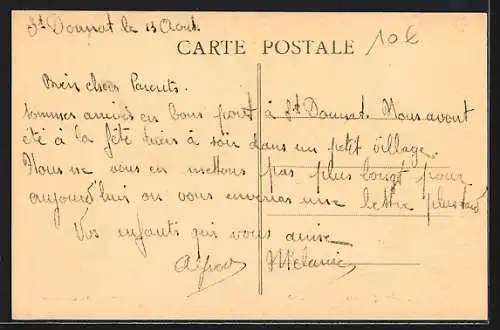 St Donnat le 13 Aout.
CARTE POSTALE
10€
Bien chers Parents.
Sommes arrivés en bons port à St Donnat. Nous avont
été à la fête hiers à soir dans un petit village.
Nous ne vous en mettons pas plus longt pour
aujourd'hui on vous enverras une lettre plus tard
Vos enfants qui vous aime
Alfred Mélanie